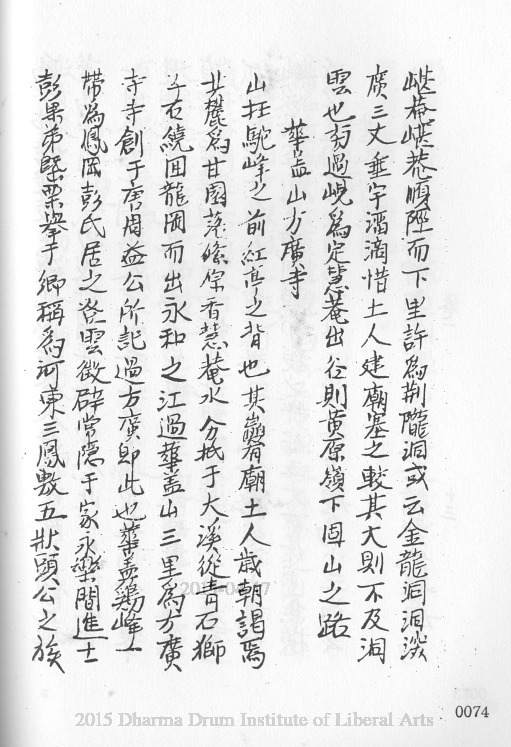 庵順陘而下里許為荆隴洞或云金龍洞洞深
廣三丈垂宇滴滴惜土人建廟塞之較其大則不及洞
雲也前過峴為定慧菴出谷則黄原嶺下固山之路
華盖山方廣寺
山在駝峰之前紅亭之背也其巔有廟土人歲朝謁焉
北麓為甘園菴條岸香慧菴水分抵于大溪從青石獅
子右繞囲龍岡而出永和之江過華盖山三里為方廣
寺寺創于唐周益公所記過方廣即此也華盖鷄峰一
帶為鳳岡彭氏居之登雲徵辟常隱于家永樂間進士
彭果弟槩栗擧于鄉稱為河東三鳳敷五狀頭公之族
2015 Dharma Drum Institute of Liberal Arts
0074